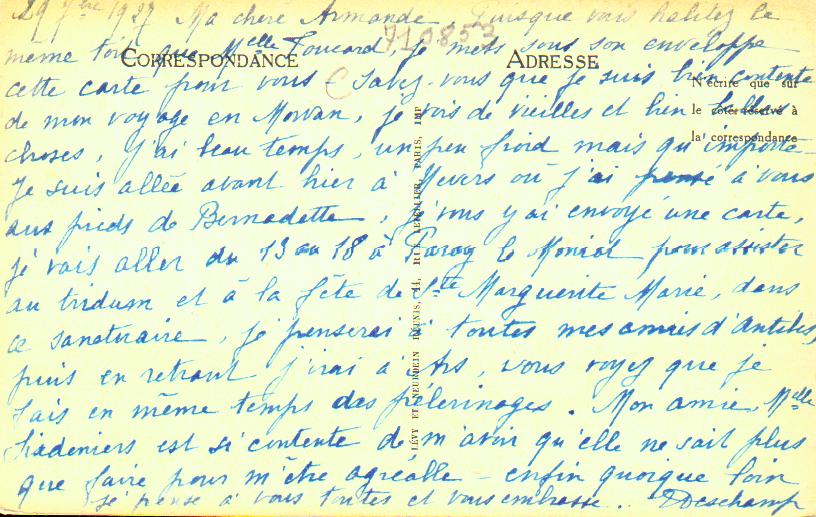 29 7bre 1927 Ma chère Armande Puisque vous habitez le
710853
même toit que Melle Toucard, je mets sous son enveloppe
CORRESPONDANCE
ADRESSE
cette carte pour vous Savez-vous que je suis bien contente
N'écrire que sur
de mon voyage en Morvan, je vois de vieilles et bien belles
le côté réservé à
choses, j'ai beau temps, un peu froid mais qu'importe -
la correspondance
Je suis allée avant hier à Nevers où j'ai pensé à vous
aux pieds de Bernadette, je vous y ai envoyé une carte,
je vais aller du 13 au 18 à Paray le Monial pour assister
au triduum et à la fête de Ste Marguerite Marie, dans
ce sanctuaire, je penserai à toutes mes amies d'Antibes,
puis en retrant j'irai à Ars, vous voyez que je
fais en même temps des pélerinages. Mon amie, Melle
est si contente de m'avoir qu'elle ne sait plus
que faire pour m'être agréable - enfin quoique loin
je pense à vous toutes et vous embrasse. Deschamp
LÉVY ET NEURDEIN RÉUNIS, 44, RUE LETELLIER, PARIS, IMP